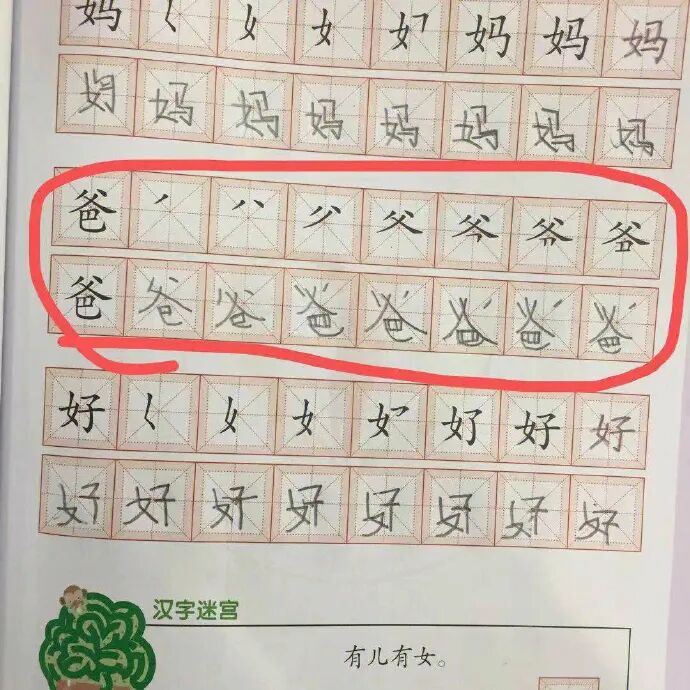 妈 𡿨 女 女 妈 妈 妈
妈 妈 妈 妈 妈 妈 妈 妈
爸 丶 八 父 爷 爷
爸 爸 爸 爸 爸 爸 爸 爸
好 𡿨 女 女 好 好 好
好 好 好 好 好 好 好 好
汉字迷宫
有儿有女。